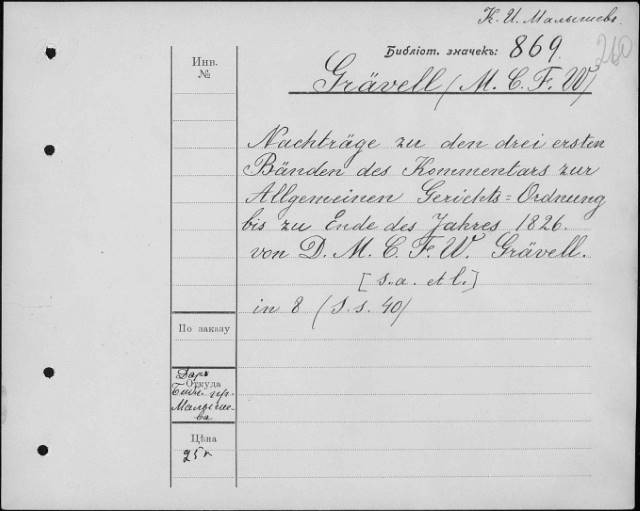 К. И. Малышевъ
Библіот. значекъ: 869.
260
Инв.
№
Grävell (M. C. F. W)
Nachträge zu den drei ersten
Bänden des Kommentars zur
Allgemeinen Gerichts=Ordnung
bis zu Ende des Jahres 1826.
von D. M. C. F. W. Grävell.
[s.a. et l.]
in 8 (S.s. 40)
По заказу
Даръ
Откуда
Малыше-
ва
Цѣна
25к